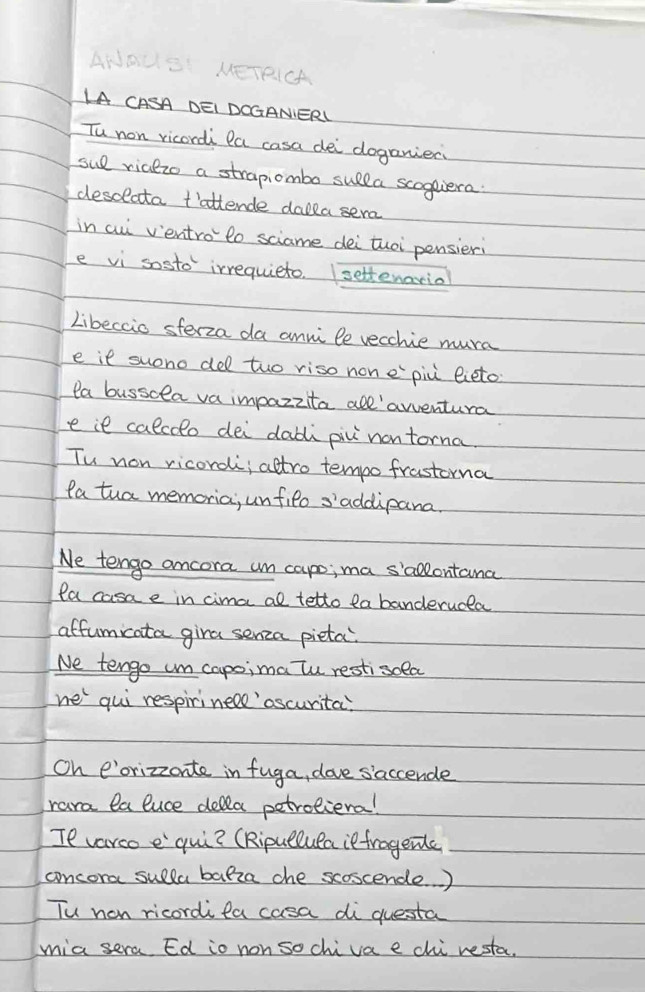 ANALISI METRICA
LA CASA DEI DOGANIERI
Tu non ricordi la casa dei doganieri
sul rialzo a strapiombo sulla scogliera:
desolata t'attende dalla sera
in cui v'entrò lo sciame dei tuoi pensieri
e vi sostò irrequieto. settenario
Libeccio sferza da anni le vecchie mura
e il suono del tuo riso non è più lieto:
la bussola va impazzita all'avventura
e il calcolo dei dadi più non torna.
Tu non ricordi; altro tempo frastorna
la tua memoria; un filo s'addipana.
Ne tengo ancora un capo; ma s'allontana
la casa e in cima al tetto la banderuola
affumicata gira senza pietà.
Ne tengo un capo; ma Tu resti sola
nè qui respiri nell'oscurità.
Oh l'orizzonte in fuga, dove s'accende
rara la luce della petroliera!
Il varco è qui? (Ripullula il fragente
ancora sulla balza che scoscende...)
Tu non ricordi la casa di questa
mia sera. Ed io non so chi va e chi resta.